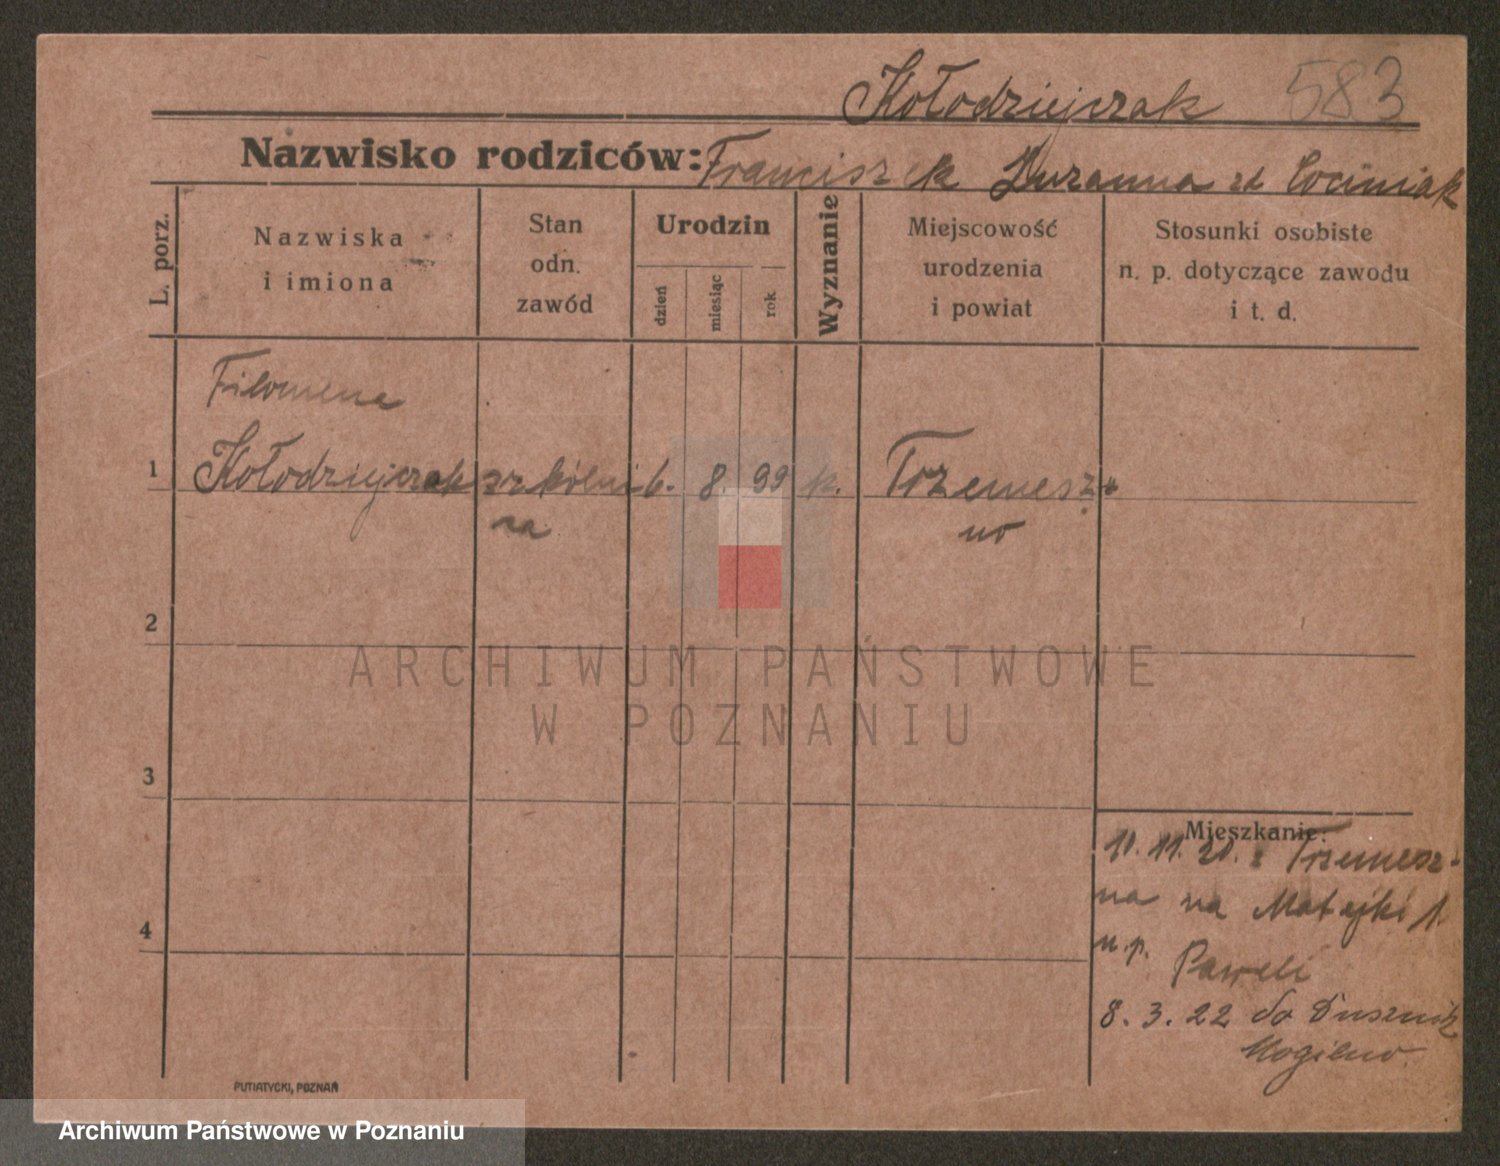 Kołodziejczak 583
Nazwisko rodziców: Franciszek Zuzanna zd Cociniak
L. porz.
Nazwiska
i imiona
Stan
odn.
zawód
Urodzin
dzień
miesiąc
rok
Wyznanie
Miejscowość
urodzenia
i powiat
Stosunki osobiste
n. p. dotyczące zawodu
i t. d.
Filomena
1 Kołodziejczak 6. 8. 99 k. Trzemesz-
no
2
3
4
Mieszkanie:
10. 11. 21. z Trzemesz-
na na Matejki 1.
u. p. Paweli
8. 3. 22 do
Mogilno
PUTIATYCKI, POZNAŃ
ARCHIWUM PAŃSTWOWE
W POZNANIU
Archiwum Państwowe w Poznaniu